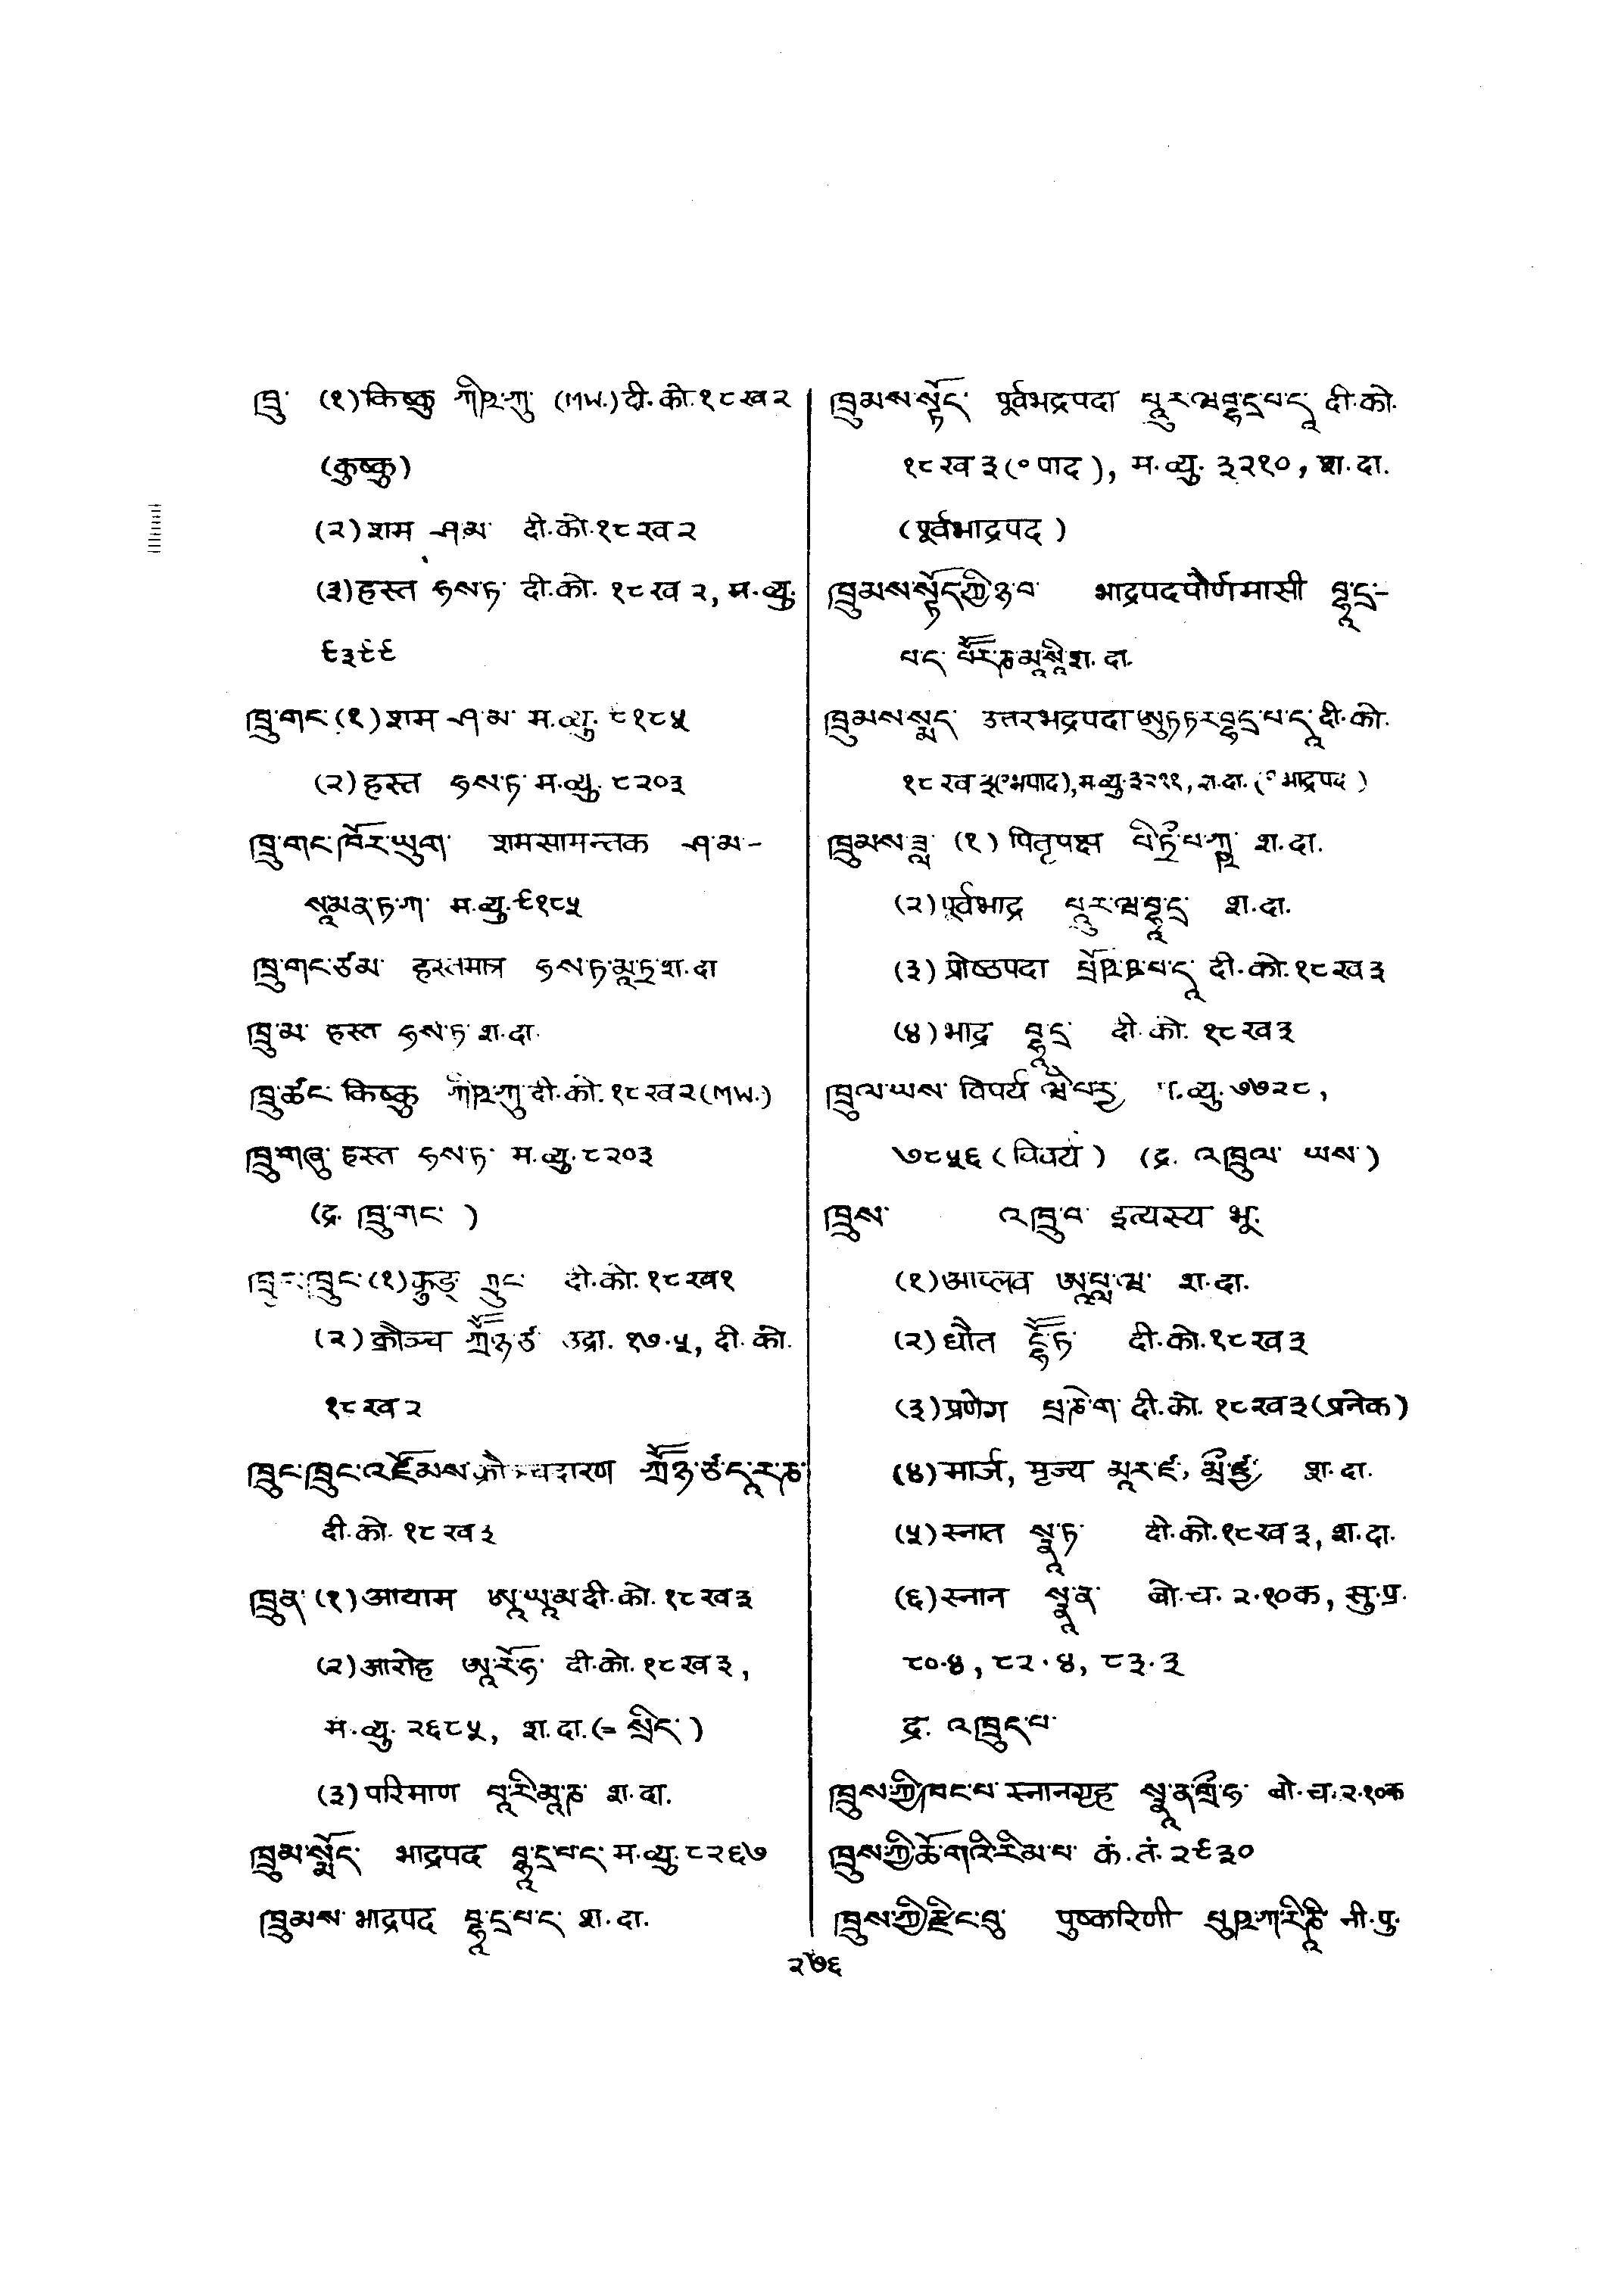 ཁྲུ་ (१) किष्कु ཀིཥྐུ (MW.) दी. को. १८ ख २
(कुष्कु)
(२) शम ཤ་མ་ दी. को. १८ ख २
(३) हस्त ཧས་ཏ་ दी. को. १८ ख २, म. व्यु.
६३९९
ཁྲུ་གང་ (१) शम ཤ་མ་ म. व्यु. ८१८५
(२) हस्त ཧས་ཏ་ म. व्यु. ८२०३
ཁྲུ་གང་ཁོར་ཡུག་ शमसामन्तक ཤ་མ་-
སཱ་མན་ཏ་ཀ་ म. व्यु. ९१८५
ཁྲུ་གང་ཙམ་ हस्तमात्र ཧས་ཏ་མཱ་ཏྲ་ श. दा
ཁྲུ་མ་ हस्त ཧས་ཏ་ श. दा.
ཁྲུ་ཚང་ किष्कु ཀིཥྐུ་ दी. को. १८ ख २ (MW.)
ཁྲུ་གཞུ་ हस्त ཧས་ཏ་ म. व्यु. ८२०३
(द्र. ཁྲུ་གང་ )
ཁྲུང་ཁྲུང་ (१) क्रुङ् ཀྲུང་ दी. को. १८ ख १
(२) क्रौञ्च ཀྲཽཉ་ཙ་ उद्रा. १७.५, दी. को.
१८ ख २
ཁྲུང་ཁྲུང་འཇོམས་ क्रौञ्चदारण ཀྲཽཉ་ཙ་དཱ་ར་ཎ་
दी. को. १८ ख ३
ཁྲུན་ (१) आयाम ཨཱ་ཡཱ་མ་ दी. को. १८ ख ३
(२) आरोह ཨཱ་རོ་ཧ་ दी. को. १८ ख ३,
म. व्यु. २६८५, श. दा. (= སྲིང་ )
(३) परिमाण པ་རི་མཱ་ཎ་ श. दा.
ཁྲུམ་སྨོད་ भाद्रपद བྷཱ་དྲ་པ་ད་ म. व्यु. ८२६७
ཁྲུམས་ भाद्रपद བྷཱ་དྲ་པ་ད་ श. दा.
ཁྲུམས་སྟོད་ पूर्वभद्रपदा པཱུར་ཝ་བྷ་དྲ་པ་དཱ दी. को.
१८ ख ३ (॰पाद), म. व्यु. ३२१०, श. दा.
(पूर्वभाद्रपद)
ཁྲུམས་སྟོད་ཀྱི་ཉ་བ་ भाद्रपदपौर्णमासी བྷཱ་དྲ་-
པ་ད་ པཽར་ཎ་མཱ་སཱི་ श. दा.
ཁྲུམས་སྨད་ उत्तरभद्रपदा ཨུཏ་ཏ་ར་བྷ་དྲ་པ་དཱ दी. को.
१८ ख ३ (॰भपाद), म. व्यु. ३२११, श. दा. (॰भाद्रपद)
ཁྲུམས་ཟླ་ (१) पितृपक्ष པི་ཏྲྀ་པ་ཀྵ श. दा.
(२) पूर्वभाद्र པཱུར་ཝ་བྷཱ་དྲ་ श. दा.
(३) प्रोष्ठपदा པྲོཥ་ཋ་པ་དཱ दी. को. १८ ख ३
(४) भाद्र བྷཱ་དྲ་ दी. को. १८ ख ३
ཁྲུལ་ཡས་ विपर्य ཝི་པརྱ म. व्यु. ७७२८,
७८५६ (विवर्य) (द्र. འཁྲུལ་ ཡས་ )
ཁྲུས་ འཁྲུ་བ་ इत्यस्य भू.
(१) आप्लव ཨཱ་པླ་ཝ་ श. दा.
(२) धौत དྷཽ་ཏ་ दी. को. १८ ख ३
(३) प्रणेग པྲ་ཎེ་ག་ दी. को. १८ ख ३ (प्रनेक)
(४) मार्ज, मृज्य མཱར་ཛ་, མྲྀ་ཛྱ་ श. दा.
(५) स्नात སྣཱ་ཏ་ दी. को. १८ ख ३, श. दा.
(६) स्नान སྣཱ་ན་ बो. च. २.१०क, सु. प्र.
८०.४, ८२.४, ८३.३
द्र. འཁྲུད་པ་
ཁྲུས་ཀྱི་ཁང་པ་ स्नानगृह སྣཱ་ན་གྲྀ་ཧ་ बो. च. २.१०क
ཁྲུས་ཀྱི་ཆོ་གའི་རིམ་པ་ कं. तं. २९३०
ཁྲུས་ཀྱི་རྫིང་བུ་ पुष्करिणी པུཥ་ཀ་རི་ཎཱི नी. पु.
२७६